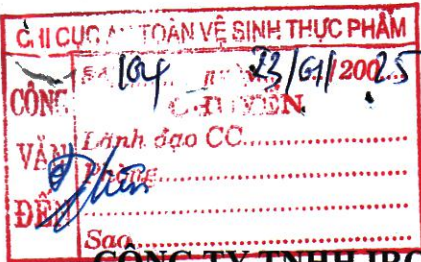 CHI CỤC AN TOÀN VỆ SINH THỰC PHẨM
CÔNG VĂN ĐẾN
104 23/01/2025
CHUYỂN
Lãnh đạo CC
Phòng
Sao
CÔNG TY TNHH